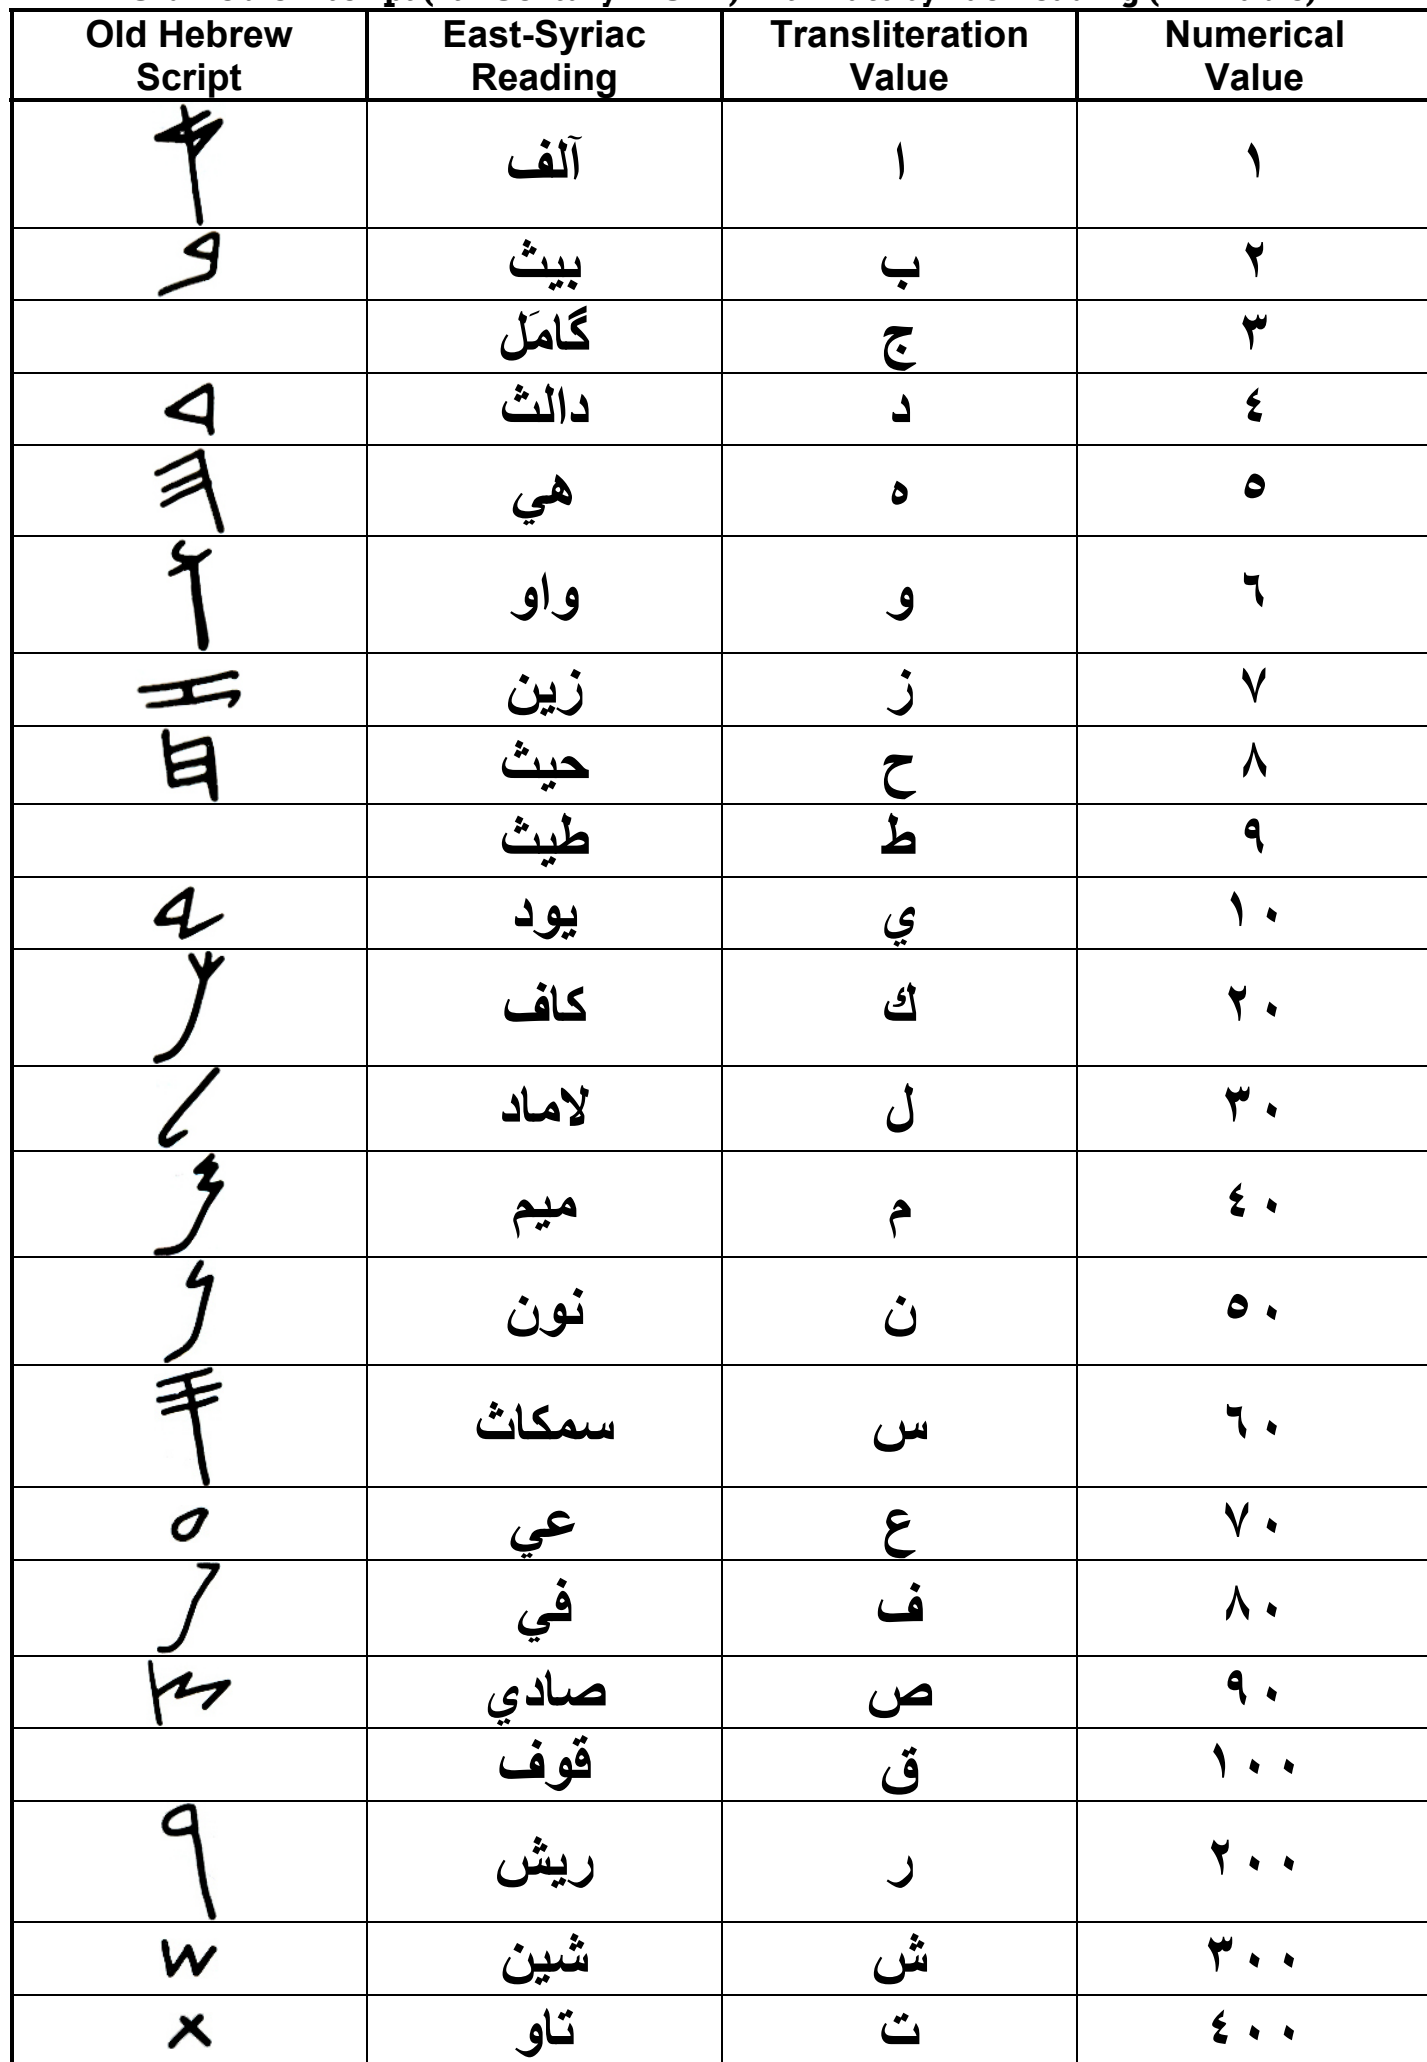 Old Hebrew Script East-Syriac Reading Transliteration Value Numerical Value
𐤀 آلف ا ١
𐤁 بيث ب ٢
گامَل ج ٣
𐤃 دالث د ٤
𐤄 هي ه ٥
𐤅 واو و ٦
𐤆 زين ز ٧
𐤇 حيث ح ٨
طيث ط ٩
𐤉 يود ي ١٠
𐤊 كاف ك ٢٠
𐤋 لاماد ل ٣٠
𐤌 ميم م ٤٠
𐤍 نون ن ٥٠
𐤎 سمكاث س ٦٠
𐤏 عي ع ٧٠
𐤐 في ف ٨٠
𐤑 صادي ص ٩٠
قوف ق ١٠٠
𐤓 ريش ر ٢٠٠
𐤔 شين ش ٣٠٠
𐤕 تاو ت ٤٠٠